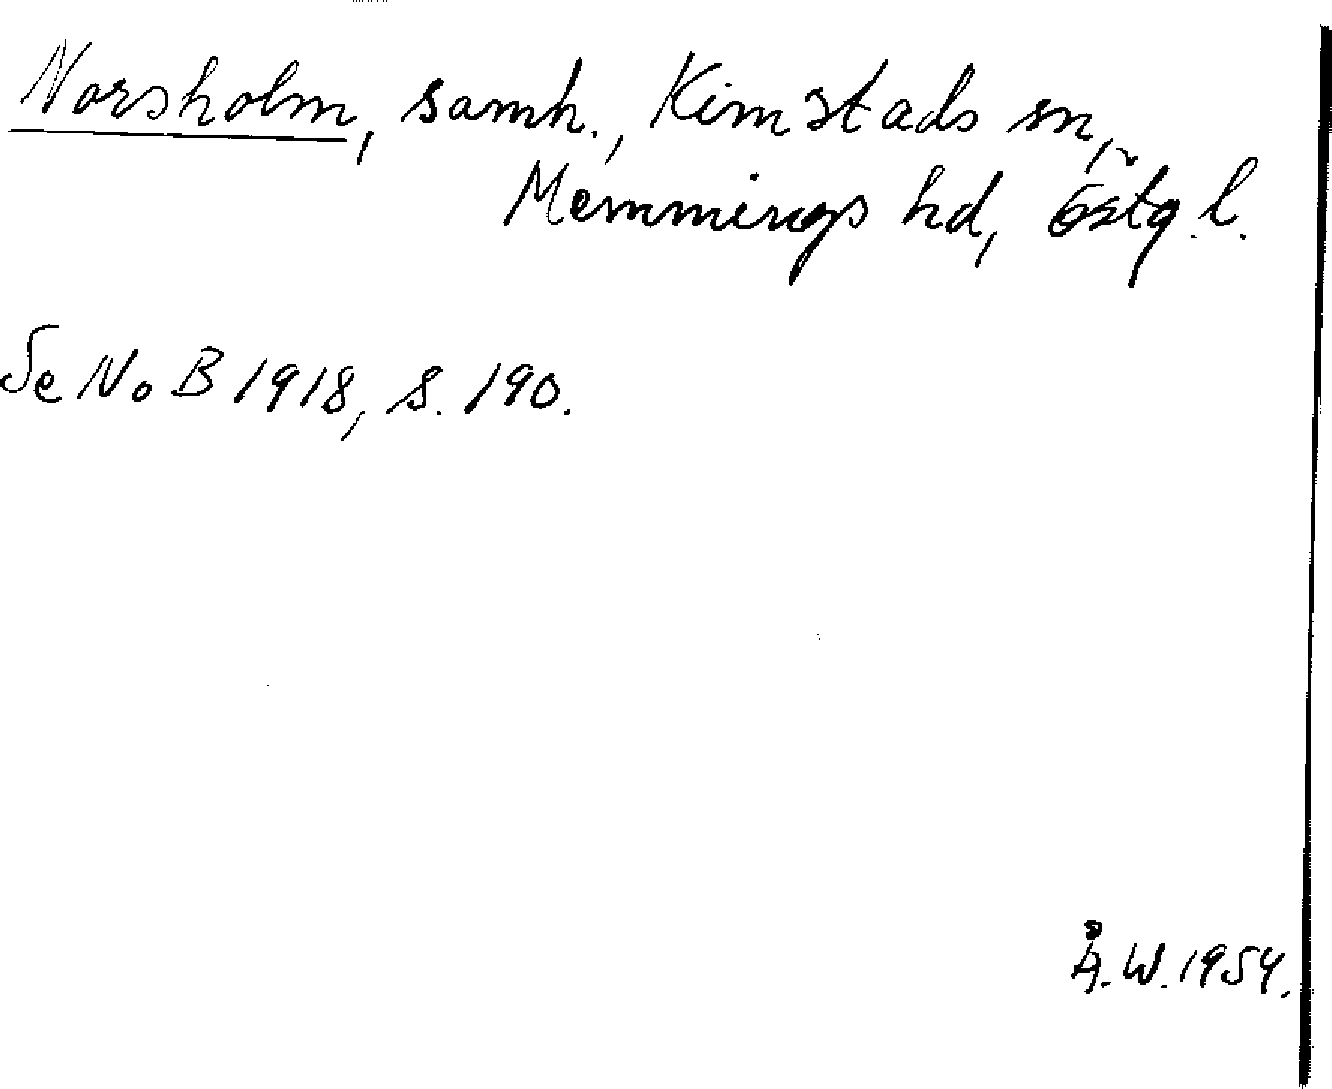 Norsholm, samh., Kimstads sn,
Memmings hd, Östg. l.
Se NoB 1918, s. 190.
Å. W. 1954.